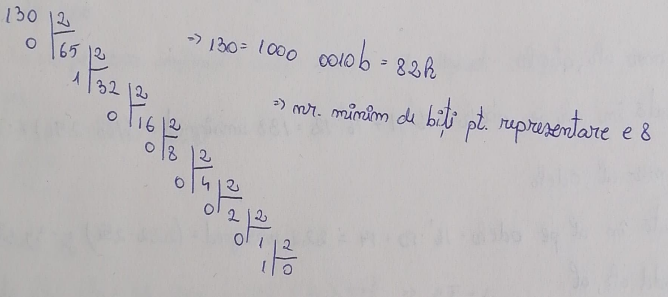 130 | 2
0 | 65 | 2
1 | 32 | 2
0 | 16 | 2
0 | 8 | 2
0 | 4 | 2
0 | 2 | 2
0 | 1 | 2
1 | 0
=> 130 = 1000 0010b = 82h
=> nr. minim de biți pt. reprezentare e 8